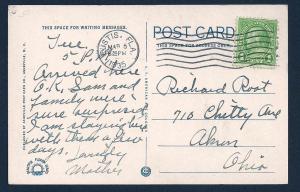 THIS SPACE FOR WRITING MESSAGES.
POST CARD
THIS SPACE FOR ADDRESS ONLY.
EUSTIS, FLA.
MAR 5
PM
1935
Tue.
5 P.M.
Arrived here
O.K. Sam and
Family were
sure surprised
I am staying here
with them a few
days.
Lovingly
Mother
Richard Root
710 Chitty Ave
Akron
Ohio